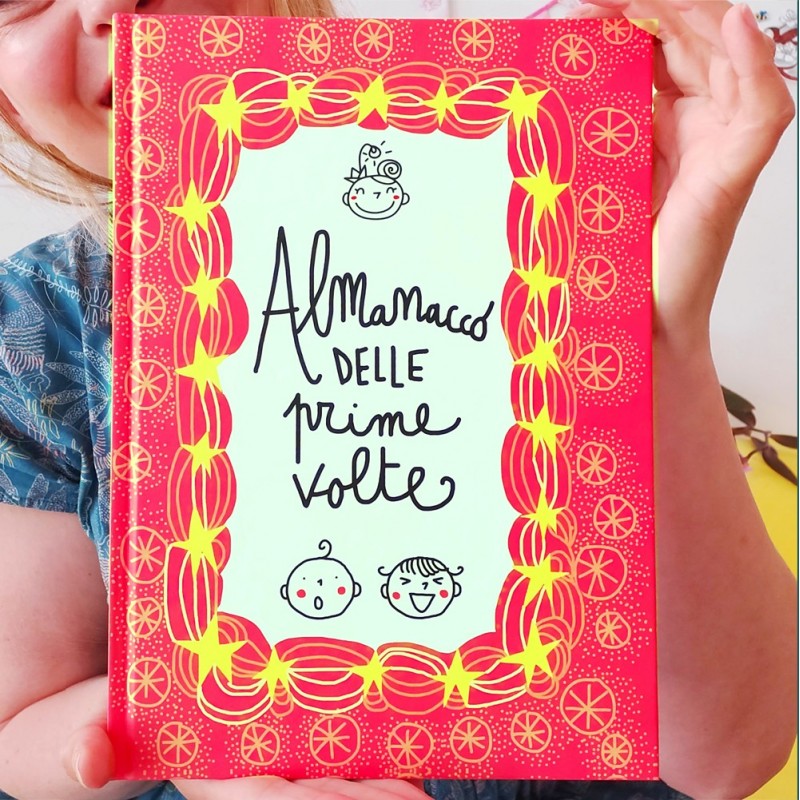 Almanacco
DELLE
prime
volte